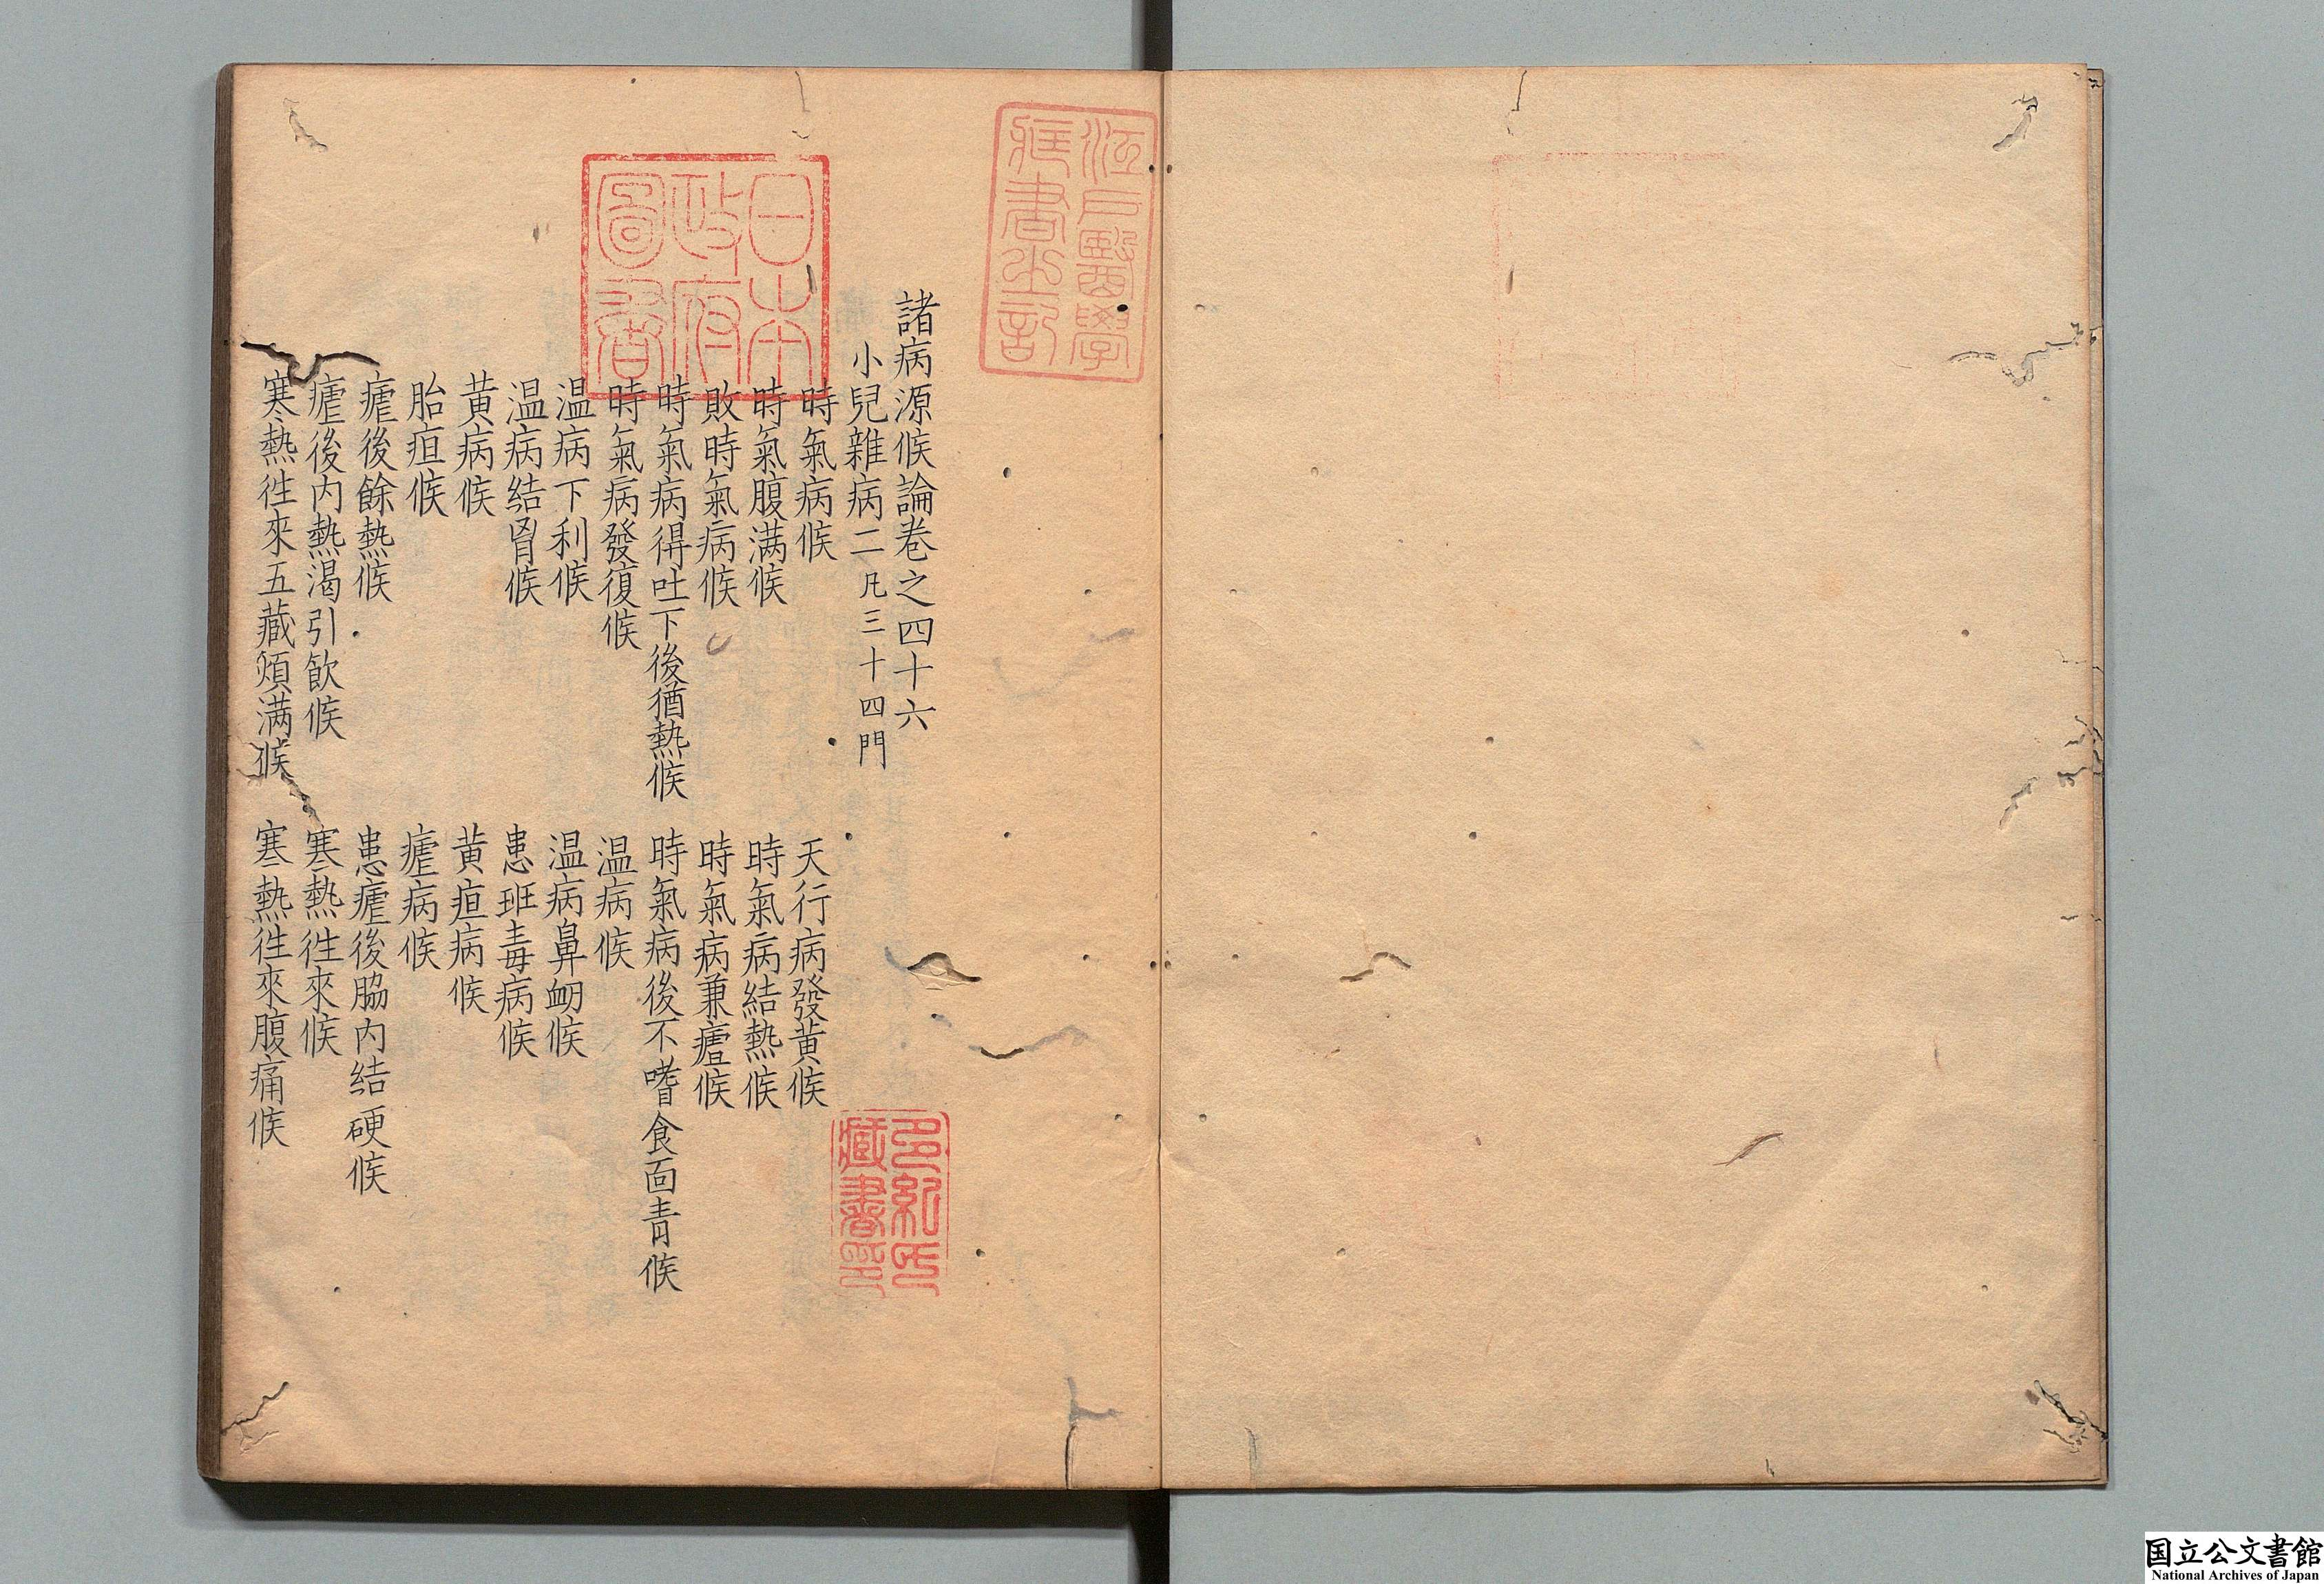 諸病源候論卷之四十六
小兒雜病二凡三十四門
時氣病候　天行病發黄候
時氣腹满候　時氣病結熱候
敗時氣病候　時氣病兼瘧候
時氣病得吐下後猶熱候　時氣病後不嗜食面青候
時氣病發復候　温病候
温病下利候　温病鼻衂候
温病結胷候　患班毒病候
黄病候　黄疸病候
胎疸候　瘧病候
瘧後餘熱候　患瘧後脇内結硬候
瘧後内熱渴引飲候　寒熱徃來候
寒熱徃來五藏煩满候　寒熱徃來腹痛候
江戸醫學
藏書之記
日本
政府
圖書
多紀氏
藏書印
国立公文書館
National Archives of Japan